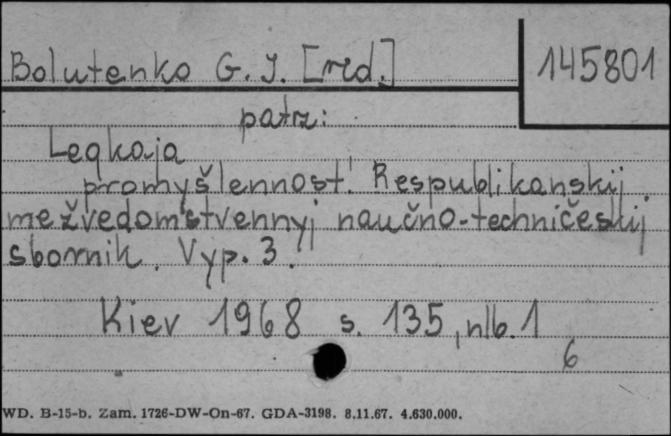 Bolutenko G. J. [red.]
145801
patrz:
Legkaja
promyšlennost'. Respublikanskij
mežvedomstvennyj naučno-techničeskij
sbornik. Vyp. 3.
Kiev 1968 s. 135, nlb. 1
6
WD. B-15-b. Zam. 1726-DW-On-67. GDA-3198. 8.11.67. 4.630.000.